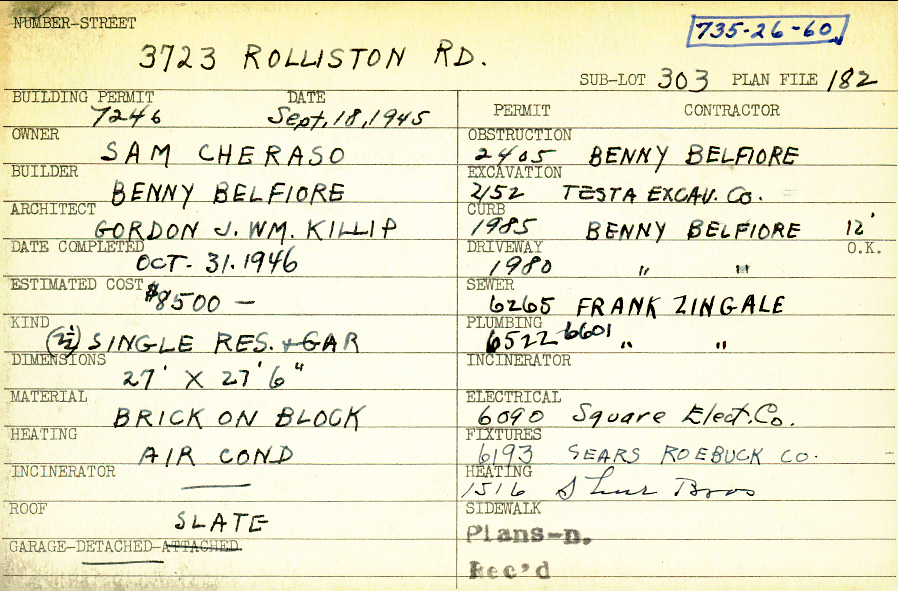 NUMBER-STREET
735-26-60
3723 ROLLISTON RD.
SUB-LOT 303 PLAN FILE 182
BUILDING PERMIT DATE
7246 Sept, 18, 1945
OWNER
SAM CHERASO
BUILDER
BENNY BELFIORE
ARCHITECT
GORDON J. WM. KILLIP
DATE COMPLETED
OCT. 31. 1946
ESTIMATED COST
$8500 —
KIND
(2½) SINGLE RES. + GAR
DIMENSIONS
27' X 27' 6"
MATERIAL
BRICK ON BLOCK
HEATING
AIR COND
INCINERATOR
—
ROOF
SLATE
GARAGE-DETACHED-ATTACHED
PERMIT CONTRACTOR
OBSTRUCTION
2405 BENNY BELFIORE
EXCAVATION
2152 TESTA EXCAV. CO.
CURB
1985 BENNY BELFIORE 12'
DRIVEWAY O.K.
1980 " "
SEWER
6265 FRANK ZINGALE
PLUMBING
6522 6601 " "
INCINERATOR
ELECTRICAL
6090 Square Elect. Co.
FIXTURES
6193 SEARS ROEBUCK CO.
HEATING
1516 Bros
SIDEWALK
Plans-n.
Rec'd